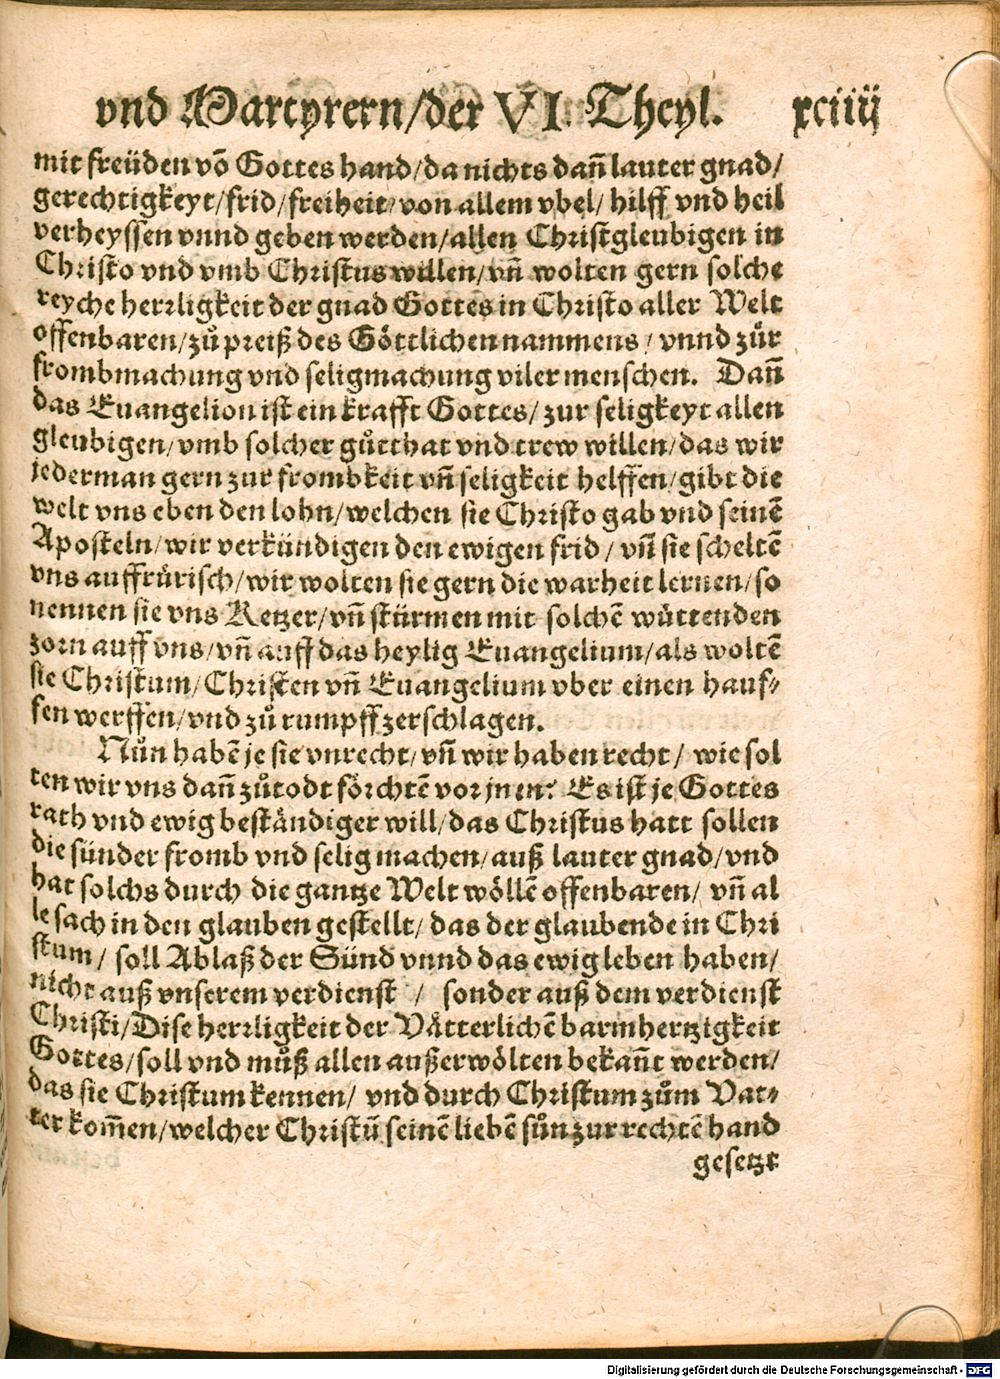 vnd Martyrern/der VI. Theyl. xciiij
mit freüden võ Gottes hand/da nichts dañ lauter gnad/
gerechtigkeyt/frid/freiheit/von allem vbel/hilff vnd heil
verheyssen vnnd geben werden/allen Christgleubigen in
Christo vnd vmb Christus willen/vñ wolten gern solche
reyche herrligkeit der gnad Gottes in Christo aller Welt
offenbaren/zů preiß des Göttlichen nammens/vnnd zůr
frombmachung vnd seligmachung viler menschen. Dañ
das Euangelion ist ein krafft Gottes/zur seligkeyt allen
gleubigen/vmb solcher gůtthat vnd trew willen/das wir
jederman gern zur frombkeit vñ seligkeit helffen/gibt die
welt vns eben den lohn/welchen sie Christo gab vnd seinẽ
Aposteln/wir verkündigen den ewigen frid/vñ sie scheltẽ
vns auffrůrisch/wir wolten sie gern die warheit lernen/so
nennen sie vns Ketzer/vñ stürmen mit solchẽ wüttenden
zorn auff vns/vñ auff das heylig Euangelium/als woltẽ
sie Christum/Christen vñ Euangelium vber einen hauf-
fen werffen/vnd zů rumpff zerschlagen.
Nůn habẽ je sie vnrecht/vñ wir haben recht/wie sol
ten wir vns dañ zůtodt förchtẽ vor jnen? Es ist je Gottes
rath vnd ewig beständiger will/das Christus hatt sollen
die sünder fromb vnd selig machen/auß lauter gnad/vnd
hat solchs durch die gantze Welt wöllẽ offenbaren/vñ al
le sach in den glauben gestellt/das der glaubende in Chri
stum/soll Ablaß der Sünd vnnd das ewig leben haben/
nicht auß vnserem verdienst/sonder auß dem verdienst
Christi/Dise herrligkeit der Vätterlichẽ barmhertzigkeit
Gottes/soll vnd můß allen außerwölten bekañt werden/
das sie Christum kennen/vnd durch Christum zům Vat-
ter kom̃en/welcher Christũ seinẽ liebẽ sůn zur rechtẽ hand
gesetzt
Digitalisierung gefördert durch die Deutsche Forschungsgemeinschaft - DFG